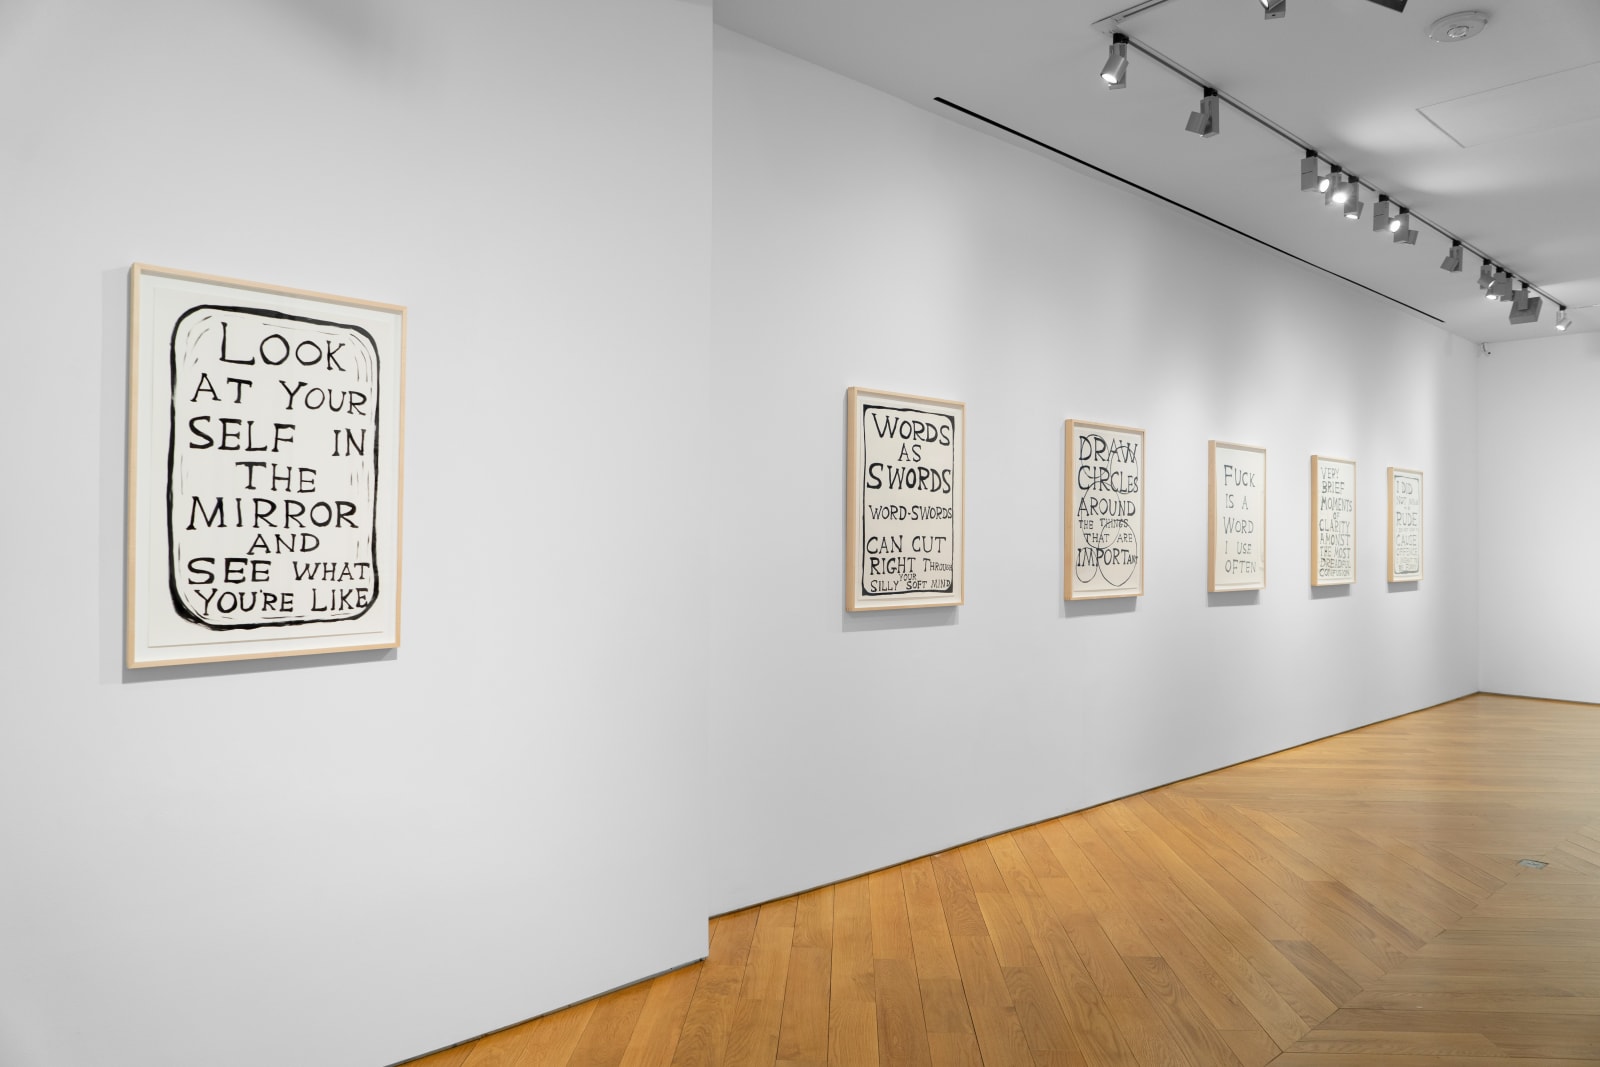 LOOK
AT YOUR
SELF IN
THE
MIRROR
AND
SEE WHAT
YOU'RE LIKE
WORDS
AS
SWORDS
WORD-SWORDS
CAN CUT
RIGHT THROUGH
YOUR
SILLY SOFT MIND
DRAW
CIRCLES
AROUND
THE THINGS
THAT ARE
IMPORTANT
FUCK
IS A
WORD
I USE
OFTEN
VERY
BRIEF
MOMENTS
OF
CLARITY
AMONST
THE MOST
DREADFUL
CONFUSION
I DID
RUDE
CAUSE
OFFENCE